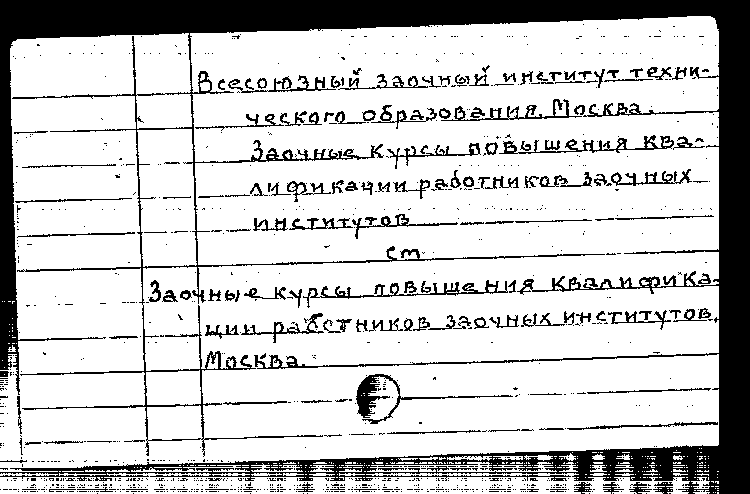 Всесоюзный заочный институт техни-
ческого образования. Москва.
Заочные курсы повышения ква-
лификации работников заочных
институтов
см
Заочные курсы повышения квалифика-
ции работников заочных институтов.
Москва.